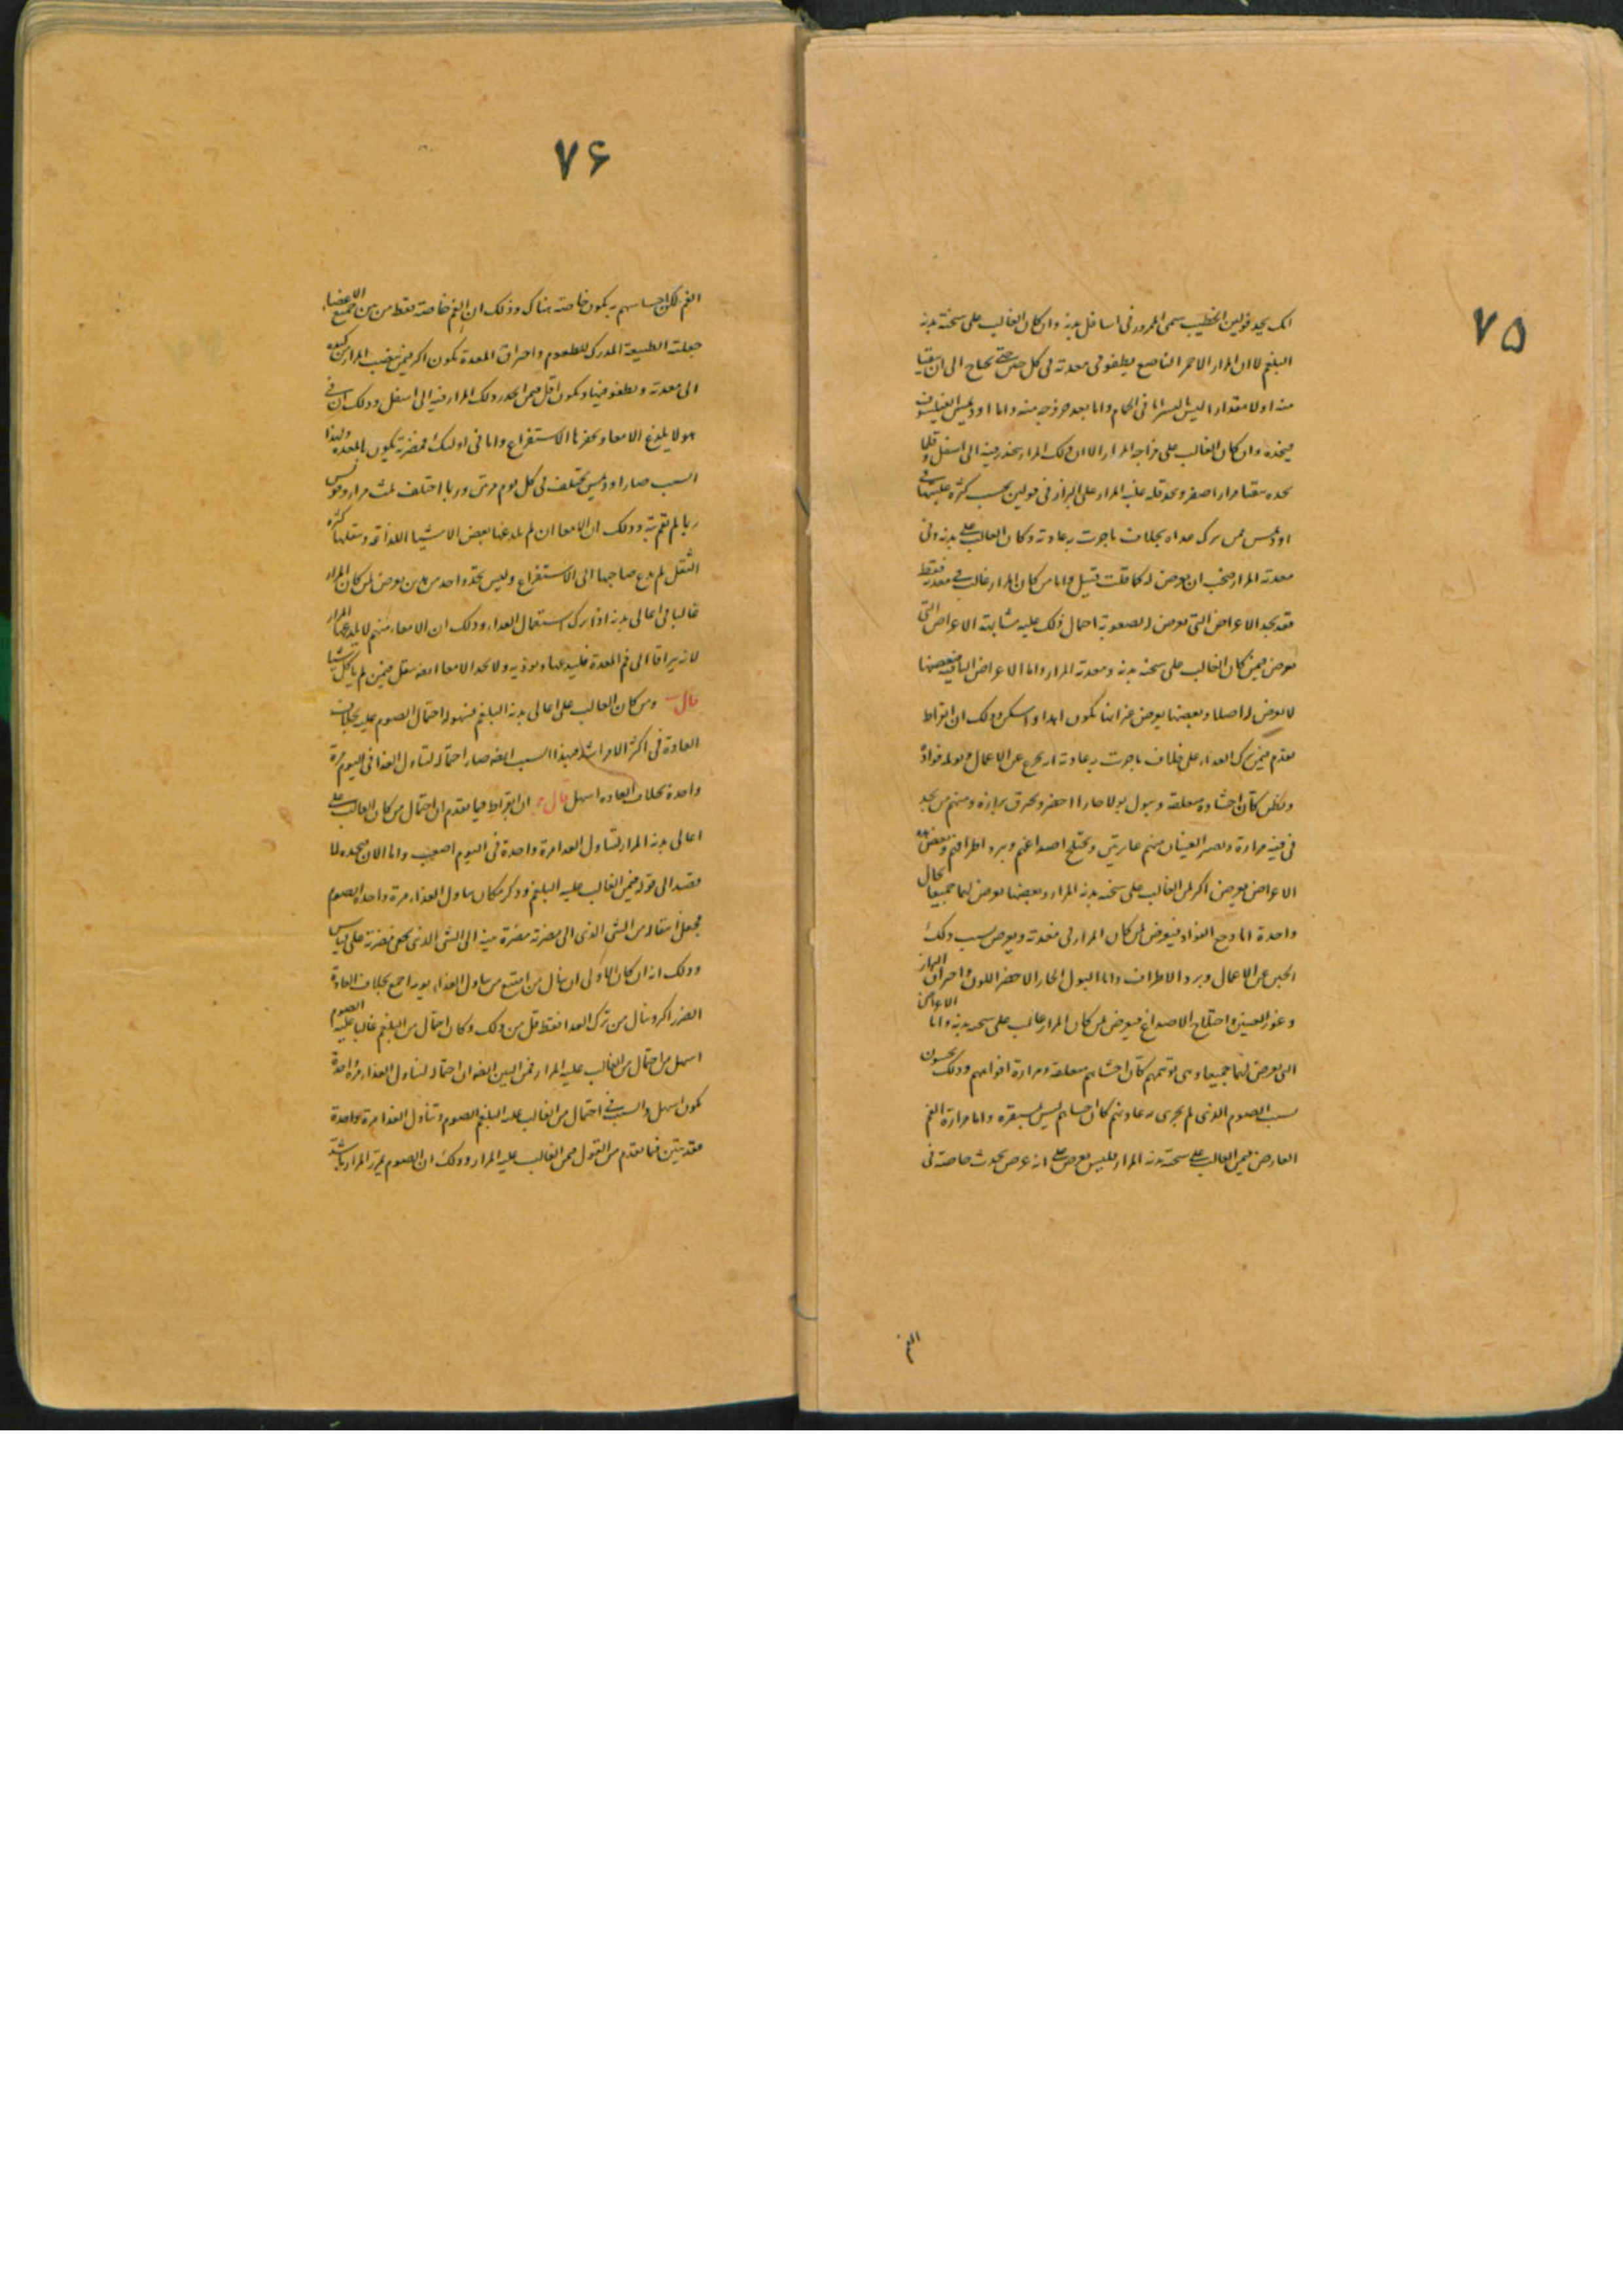 ۷۵
انك تجد قولين الخطيب سمى الممرور فى اسافل بدنه وان كان الغالب على سحنة بدنه
البلغم لا ان المرار الاحمر الناصع يطفو فى معدته فى كل حين حتى يحتاج الى ان يتقيا
منه اولا مقدارا ليس باليسير اما فى الحمام واما بعد خروجه منه واما اوديمس الفيلسوف
فيجده وان كان الغالب على مزاجه المرار الا ان ذلك المرار ينحدر فيه الى اسفل وقلما
تجده يتقيا مرارا اصفر وتجد قلة غلبة المرار على البراز فى قولين بحسب كثرة غلبتها فى
اوديمس فمن ترك غداه بخلاف ما جرت به عادته وكان الغالب على بدنه وفى
معدته المرار فيجب ان يعرض له كما قلت قبيل واما من كان المرار غالب فى معدته فقط
فقد تجد الاعراض التى تعرض له لصعوبة احتمال ذلك عليه مشابهة الاعراض التى
تعرض فيمن كان الغالب على سحنة بدنه ومعدته المرار واما الاعراض الباقية فبعضها
لا يعرض له اصلا وبعضها يعرض غير انها تكون ابدا وذلك ان ابقراط
تقدم فيمن ترك الغداء على خلاف ما جرت به عادته ان يخرج عن الاعمال ويولمه فواده
ويظن كان احشاوه معلقة ويبول بولا حارا اخضر ويحرق برازه ومنهم من يجد
فى فيه مرارة وتصير العينان منهم غايرتين وتختلج اصداغهم ويبرد اطرافهم وبعض هذه
الاعراض يعرض اكثر لمن الغالب على سحنة بدنه المرار وبعضها يعرض لهما جميعا بحال
واحدة اما وجع الفواد فيعرض لمن كان المرار فى معدته ويعرض بسبب ذلك
الجبن عن الاعمال وبرد الاطراف واما البول الحار الاخضر اللون واحراق البراز
وغور العينين واختلاج الاصداغ فيعرض لمن كان المرار غالب على سحنة بدنه واما الاعراض
التى تعرض لهما جميعا وهى توهمهم كان احشاهم معلقة ومرارة افواههم وذلك يحسون
بسبب الصوم الذى لم يجرى به عادتهم كان احشاهم ليس بمستقرة واما مرارة الفم
العارض فيمن الغالب على سحنة بدنه المرار فليس يعرض على انه عرض يحدث خاصة فى
الفم
۷۶
الفم لكن احساسهم به يكون خاصة هناك وذلك ان الفم خاصة فقط من بين جميع الاعضاء
جعلته الطبيعة المدرك للطعوم واحراق المعدة يكون اكثر فيمن ينصب المرار من كبده
الى معدته ويطفو فيها ويكون اقل فيمن انحدر ذلك المرار فيه الى اسفل وذلك ان فى
هولا يلدغ الامعا ويحفزها الاستفراغ واما فى اوليك فمضرته تكون بالمعدة ولهذا
السبب صار اوديمس يختلف فى كل يوم مرتين وربما اختلف ثلث مرار وقولين
ربما لم يقم به وذلك ان الامعا ان لم يلدغها بعض الاشيا اللذاعة ويثقلها كثرة
الثقل لم يدع صاحبها الى الاستفراغ وليس بجد واحد من هذين يعرض لمن كان المرار
غالبا فى اعالى بدنه اذا ترك استعمال الغداء وذلك ان الامعاء منهم لا يلدغها المرار
لانه يراقا الى فم المعدة فليدغها ويوذيه ولا تجد الامعا ايضا يثقل فيمن لم ياكل شيا
قال ومن كان الغالب على اعالى بدنه البلغم فسهولة احتمال الصوم عليه بخلاف
العادة فى اكثر الامر اشد فبهذا السبب ايضا صار احتماله لتناول الغذا فى اليوم مرة
واحدة بخلاف العادة اسهل قال ج ان ابقراط فيما تقدم ان احتمال من كان الغالب على
اعالى بدنه المرار لتناول الغدا مرة واحدة فى اليوم اصعب واما الان فنجده لما
قصد الى قوله فيمن الغالب عليه البلغم وذكر مكان تناول الغذاء مرة واحدة الصوم
فجعل انتقاله من الشى الذى الى مضرته مضرة مية الى الشى الذى يخفى مضرته على قياس
وذلك انه ان كان الاولى ان ينال من امتنع من تناول الغذاء يومه اجمع بخلاف العادة
الضرر اكثر وينال من ترك الغدا فقط اقل من ذلك وكان احتمال من البلغم غالبا عليه الصوم
اسهل من احتمال من الغالب عليه المرار فمن البين ايضا ان احتماله لتناول الغذاء مرة واحدة
يكون اسهل والسبب فى احتمال من الغالب عليه البلغم الصوم وتناول الغذا مرة واحدة
فقد تبين فيما تقدم من القول فيمن الغالب عليه المرار وذلك ان الصوم يمرر المرار باشد